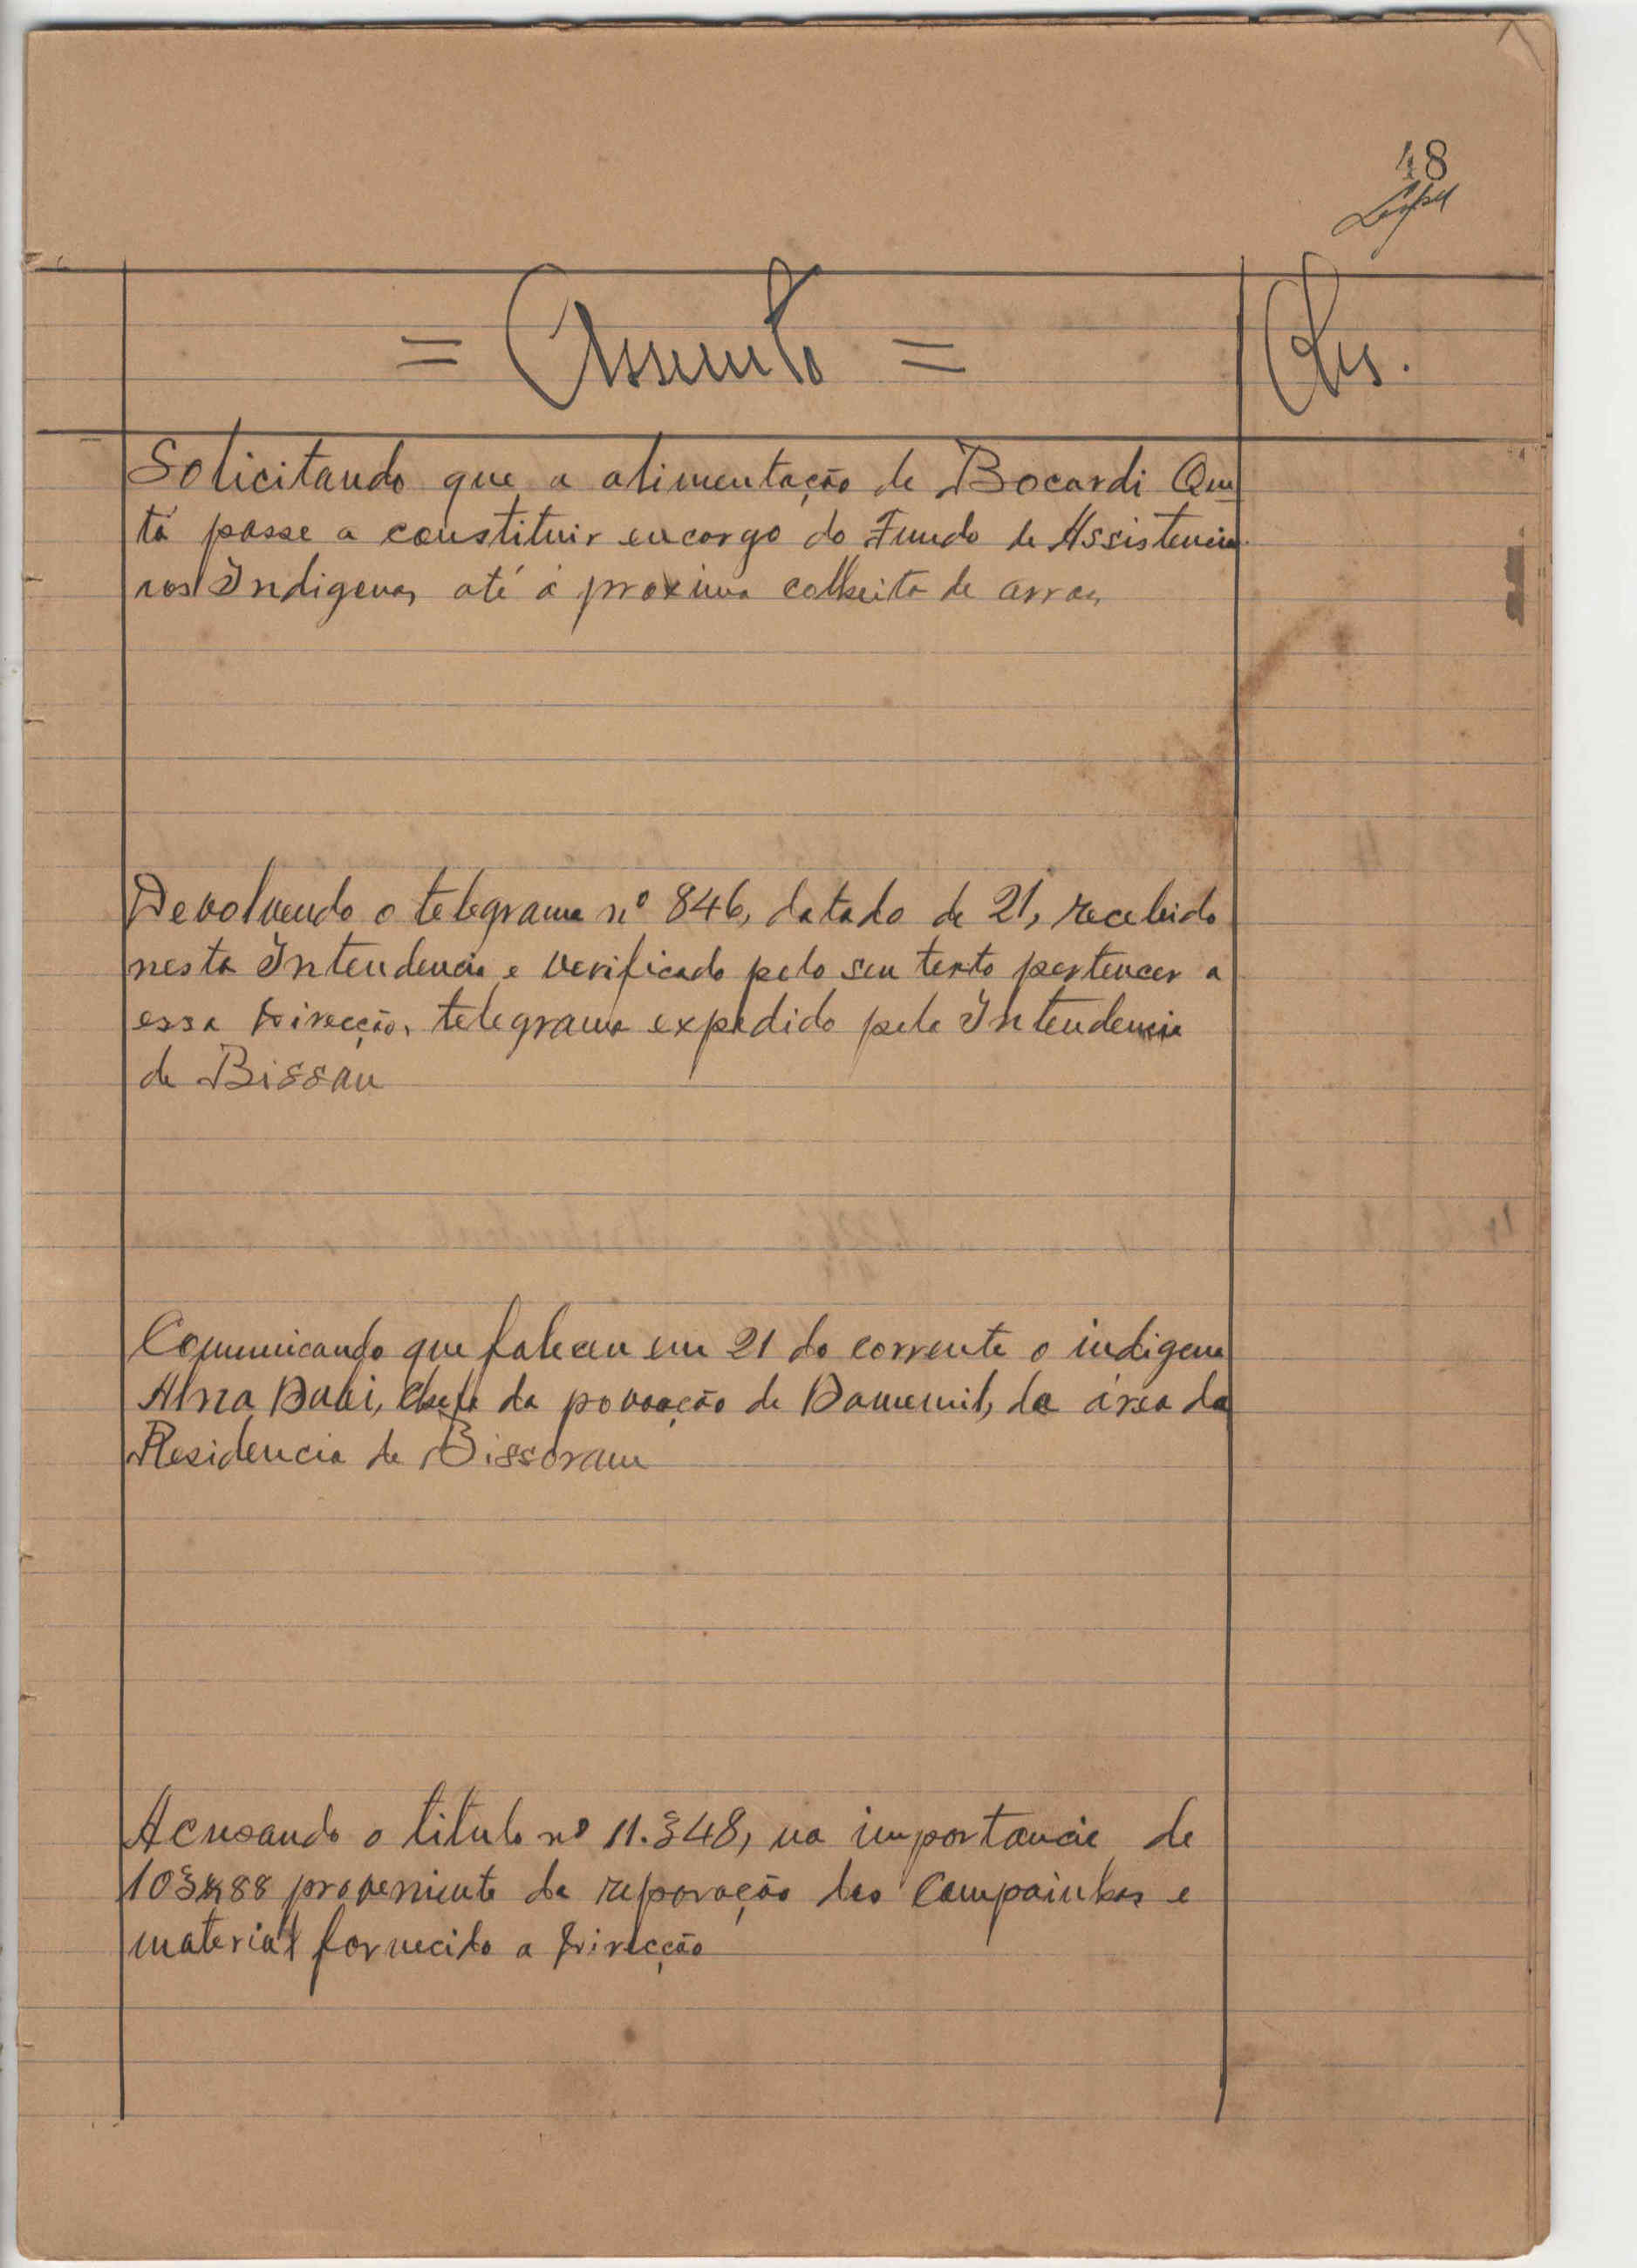 48
= Assunto =
Obs.
Solicitando que a alimentação de Bocardi Quu
tá passe a constituir encargo do Fundo de Assistencia
aos Indigenas até á proxima colheita de arroz
Devolvendo o telegrama nº 846, datado de 21, recebido
nesta Intendencia e verificado pelo seu texto pertencer a
essa Direcção, telegrama expedido pela Intendencia
de Bissau
Comunicando que faleceu em 21 do corrente o indigena
chefe da povoação de da área da
Residencia de Bissoram
Acusando o titulo nº 11.348, na importancia de
103$88 proveniente da reparação das Campainhas e
material fornecido a Direcção